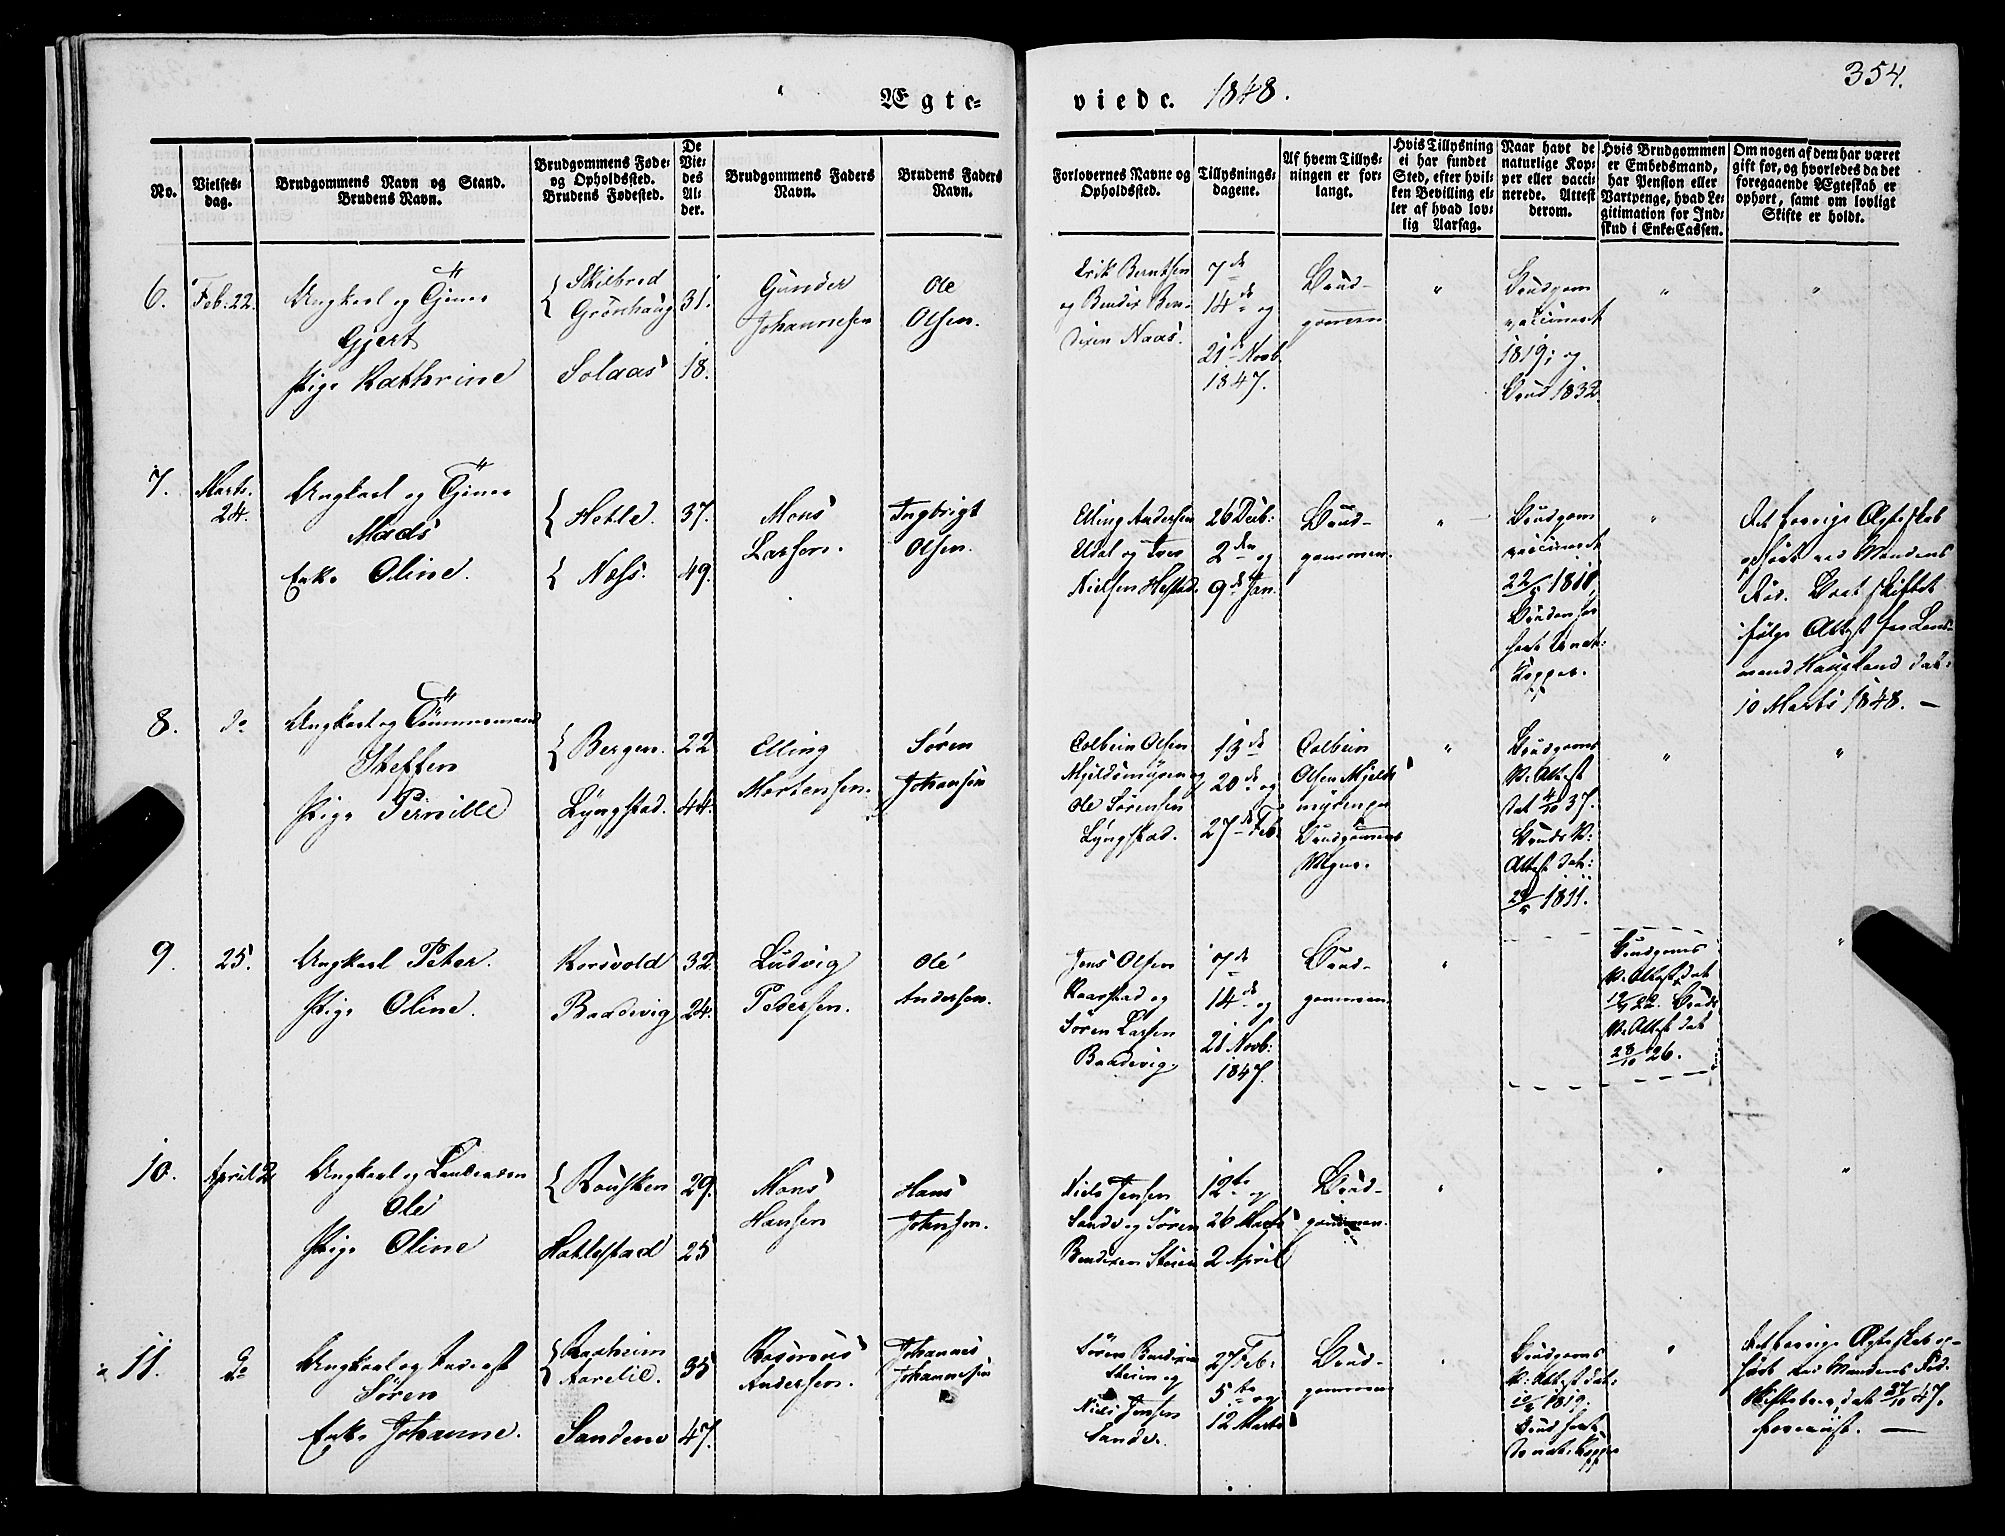 354.
Ægte-
viede. 1848.
No.
Vielses-
dag.
Brudgommens Navn og Stand.
Brudens Navn.
Brudgommens Føde-
og Opholdssted.
Brudens Fødested.
De
Vie-
des
Al-
der.
Brudgommens Faders
Navn.
Brudens Faders
Navn.
Forlovernes Navne og
Opholdssted.
Tillysnings-
dagene.
Af hvem Tillys-
ningen er for-
langt.
Hvis Tillysning
ei har fundet
Sted, efter hvil-
ken Bevilling el-
ler af hvad lov-
lig Aarsag.
Naar havt de
naturlige Kop-
per eller vacci-
nerede. Attest
derom.
Hvis Brudgommen
er Embedsmand,
har Pension eller
Vartpenge, hvad Le-
gitimation for Ind-
skud i Enke-Cassen.
Om nogen af dem har været
gift før, og hvorledes da det
foregaaende Ægteskab er
ophørt, samt om lovligt
Skifte er holdt.
6.
Feb: 22.
Ungkarl og Tjener
Gjert
Pige Kathrine
Skilbred
Grønhaug
Solaas
31.
18.
Gunder
Johannesen
Ole
Olsen.
Erik Berntsen
og Bendix Ben-
dixen Naas.
7de
14de og
21de Novb.
1847.
Brud-
gommen
"
Brudgom
vaccineret
1819; og
Brud 1832.
"
"
7.
Marts.
24.
Ungkarl og Tjener
Mads
Enke Oline.
Hetle.
Næss.
37.
49.
Mons
Larsen.
Ingbrigt
Olsen.
Elling Andersen
og Iver
Nielsen
26 Decb:
2den og
9de Jan.
Brud-
gommen.
"
Brudgom
vaccineret
1818,
Bruden har
havt nat:
Kopper.
"
Det forrige Ægteskab
ophørt ved Mandens
Død. Boet skiftet
ifølge Attest fra Lens-
mand Haugland dat:
10 Marts 1848. —
8.
do
Ungkarl og Tømmermand
Steffen
Pige Pernille
Bergen.
Lyngstad.
22
44.
Elling
Mortensen.
Søren
Johansen
Colbein Olsen
Mjeldemyren og
Ole Sørensen
Lyngstad.
13de
20de og
27de Feb.
Colbein
Olsen Mjelde
myren paa
Brudgommens
Vegne.
"
Brudgoms
V: Attest
dat 4/10 37.
Bruds V:
Attest dat:
1811.
"
"
9.
25.
Ungkarl Peter.
Pige Oline.
Korsvold
Baadsvig
32.
24.
Ludvig
Pedersen.
Ole
Andersen.
Jens Olsen
Kaarstad og
Søren Larsen
Baadsvig.
7de
14de og
21 Novb:
1847.
Brud-
gommen.
"
Brudgoms
V: Attest dat
22. Bruds
V: Attest dat
28/10 26.
"
10.
April 2
Ungkarl og Landmand
Ole
Pige Oline
Rousken
Hatlestad
29.
25
Mons
Hansen
Hans
Johnsen.
Niels Jensen
Sande og Søren
Bendixen Steien
12te og
26 Marts
2 April
Brud-
gommen.
"
"
"
11.
do
Ungkarl og Inderst
Søren
Enke Johanne.
Raaheim
Aarelid.
Sandene
35
47.
Rasmus
Andersen.
Johannes
Johannesen
Søren Bendixen
Steien og
Niels Jensen
Sande.
27 Feb:
5te og
12 Marts
Brud-
gommen
Brudgoms
V: Attest dat:
1819;
Brud havt
de nat: Kopper
"
Det forrige Ægteskab op-
hørt ved Mandens Død.
Skiftebrev dat 27/10 47.
foreviist. —